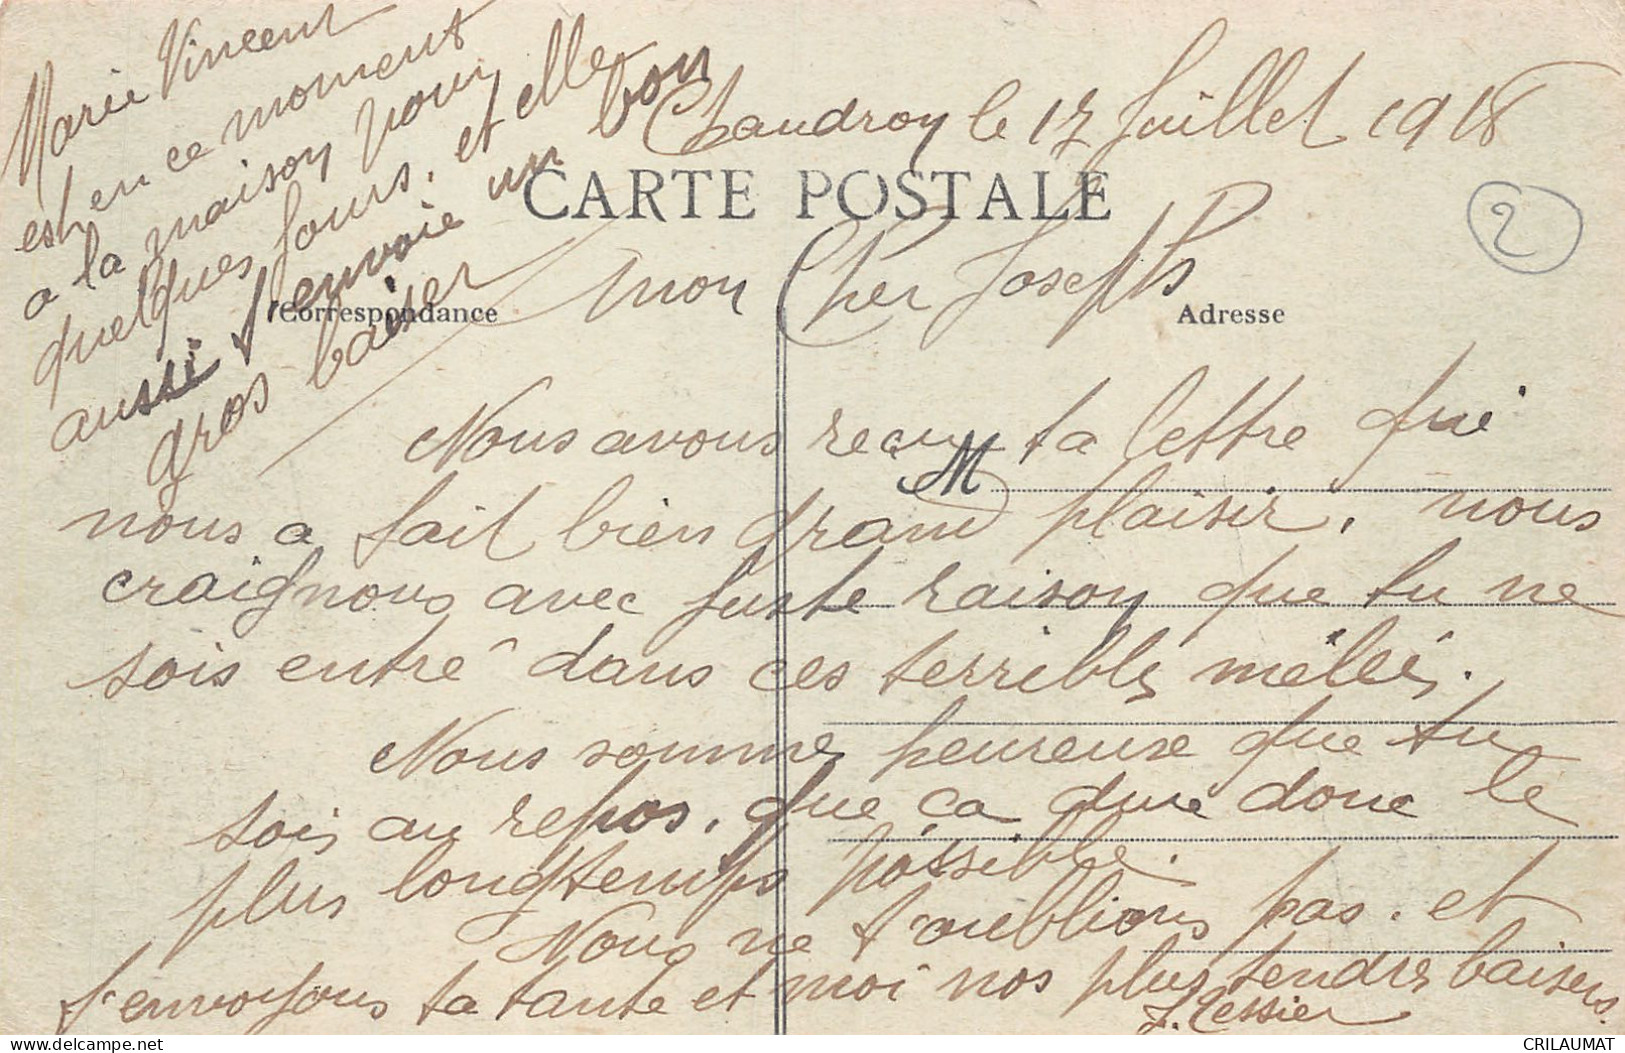 Marie Vincent
est en ce moment
a la maison pour
quelques jours. et elle
aussi t'envoie un bon
gros baiser
Chaudroy le 17 Juillet 1918
CARTE POSTALE
2
mon Cher Joseph
Correspondance
Adresse
Nous avons reçu ta lettre qui
M
nous a fait bien grand plaisir. nous
craignons avec juste raison que tu ne
sois entré dans ces terribles mêlées.
Nous sommes heureuse que tu
sois au repos. que ça dure donc le
plus longtemps possible.
Nous ne t'oublions pas. et
t'envoyons ta tante et moi nos plus tendres baisers.
J. Tessier
CRILAUMAT